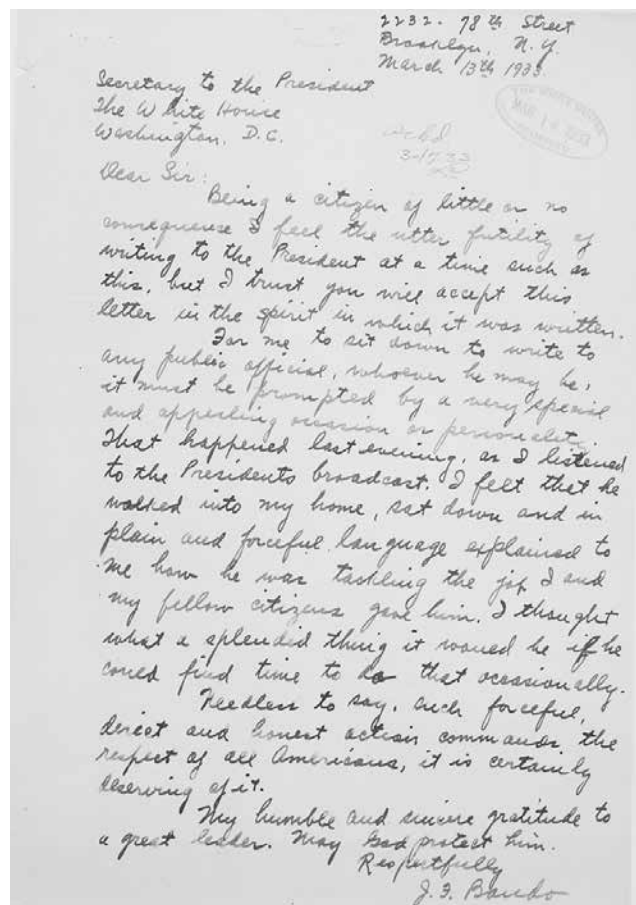 2232 - 78th Street
Brooklyn, N.Y.
March 13th 1933.
Secretary to the President
The White House
Washington, D.C.
THE WHITE HOUSE
MAR 14 1933
Dear Sir:
Being a citizen of little or no
consequence I feel the utter futility of
writing to the President at a time such as
this, but I trust you will accept this
letter in the spirit in which it was written.
For me to sit down to write to
any public official, whoever he may be,
it must be prompted by a very special
and appealing occasion or personality.
That happened last evening, as I listened
to the Presidents broadcast. I felt that he
walked into my home, sat down and in
plain and forceful language explained to
me how he was tackling the job I and
my fellow citizens gave him. I thought
what a splendid thing it would be if he
could find time to do that occasionally.
Needless to say, such forceful,
direct and honest action commands the
respect of all Americans, it is certainly
deserving of it.
My humble and sincere gratitude to
a great leader. May God protect him.
Respectfully
J. F. Bando